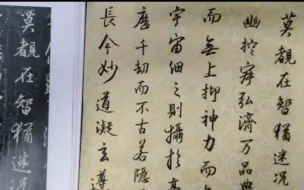 莫覩在智猶迷況
幽控寂弘濟萬品典
而無上抑神力而
宇宙細之則攝於
歷千劫而不古若隱
長今妙道凝玄遵
莫覩在智猶迷況